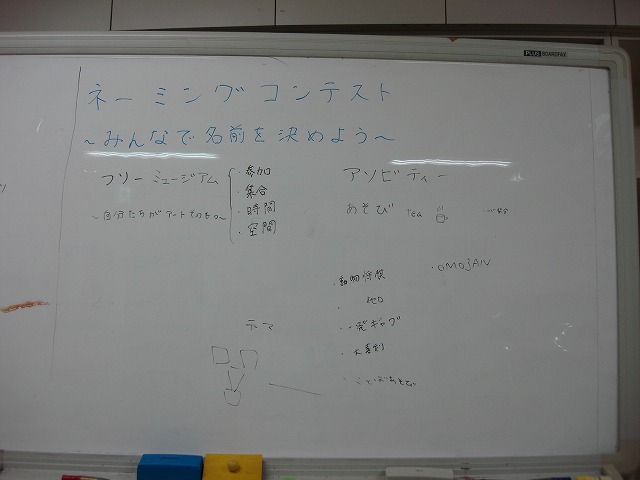 PLUS BOARDFAX
ネーミングコンテスト
~みんなで名前を決めよう~
フリーミュージアム
・参加
・集合
・時間
・空間
~自分たちがアートそのもの~
アソビティー
あそび tea
・OMOJAN
・動物
・一発ギャグ
・大喜利
・ことばあそび
テーマ